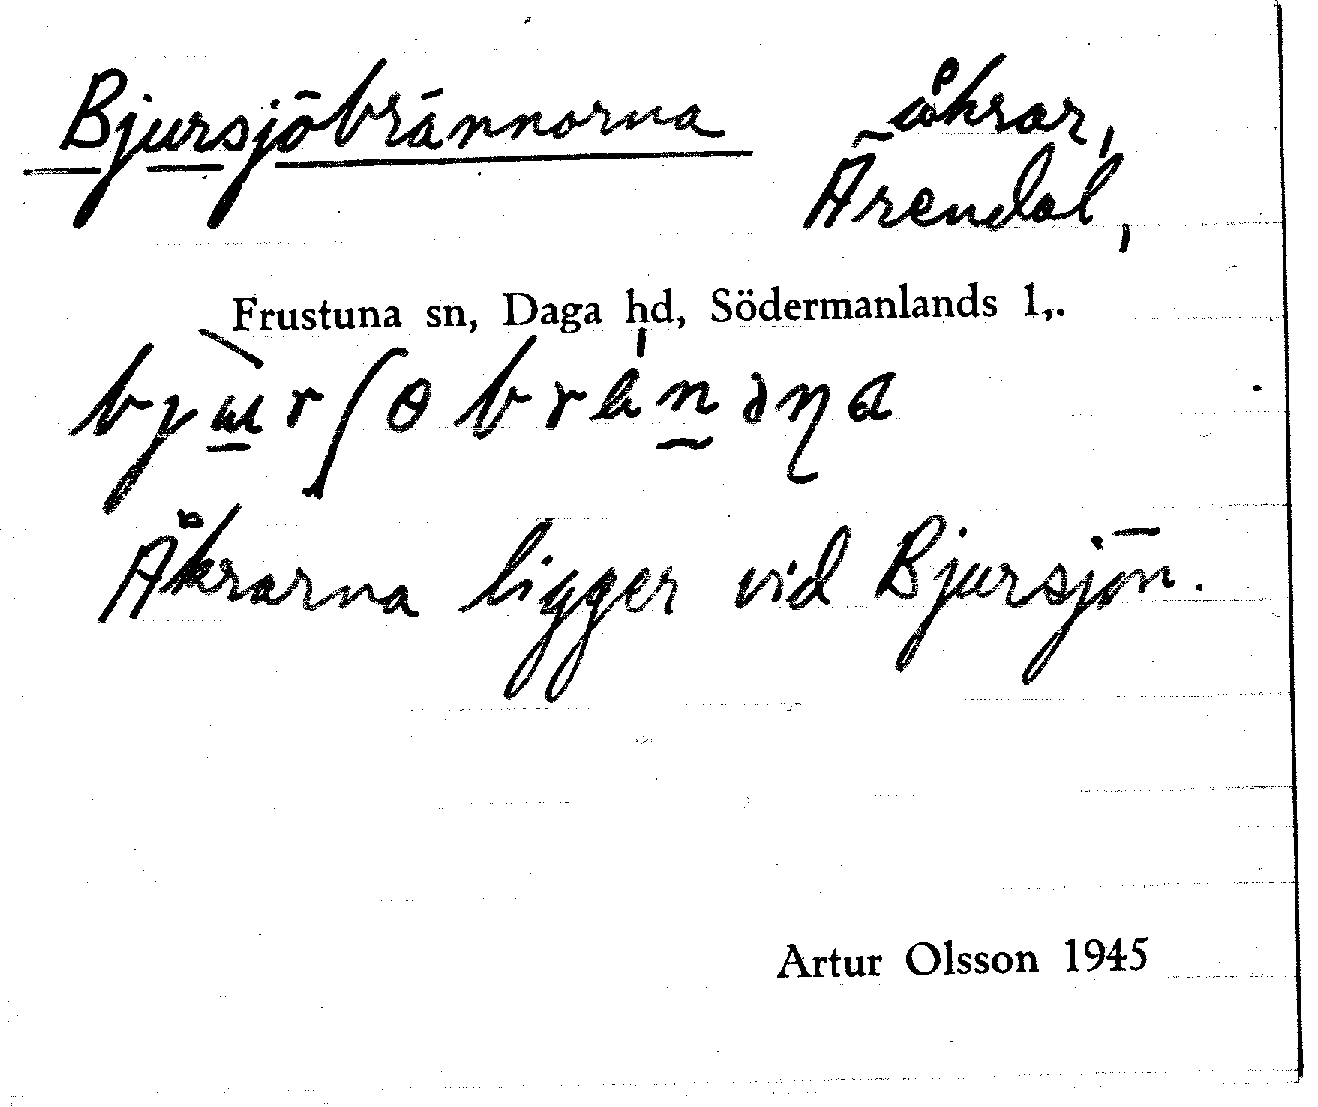 Bjursjöbrännorna åkrar,
Ärendal,
Frustuna sn, Daga hd, Södermanlands l.
Åkrarna ligger vid Bjursjön.
Artur Olsson 1945